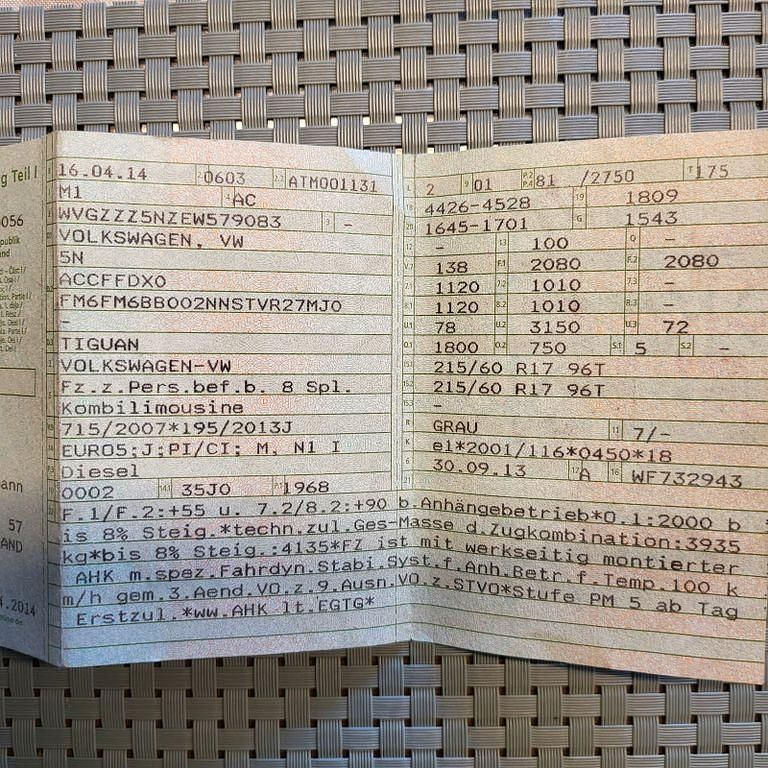 g Teil I
056
publik
and
ann
57
AND
4.2014
16.04.14 0603 ATM001131
M1 AC
WVGZZZ5NZEW579083 -
VOLKSWAGEN, VW
5N
ACCFFDX0
FM6FM6BB002NNSTVR27MJ0
-
TIGUAN
VOLKSWAGEN-VW
Fz.z.Pers.bef.b. 8 Spl.
Kombilimousine
715/2007*195/2013J
EURO5;J;PI/CI; M, N1 I
Diesel
0002 35J0 1968
2 01 81 /2750 175
4426-4528 1809
1645-1701 1543
- 100 -
138 2080 2080
1120 1010 -
1120 1010 -
78 3150 72
1800 750 5 -
215/60 R17 96T
215/60 R17 96T
-
GRAU 7/-
e1*2001/116*0450*18
30.09.13 A WF732943
F.1/F.2:+55 u. 7.2/8.2:+90 b.Anhängebetrieb*O.1:2000 b
is 8% Steig.*techn.zul.Ges-Masse d.Zugkombination:3935
kg*bis 8% Steig.:4135*FZ ist mit werkseitig montierter
AHK m.spez.Fahrdyn.Stabi.Syst.f.Anh.Betr.f.Temp.100 k
m/h gem.3.Aend.VO.z.9.Ausn.VO.z.STVO*Stufe PM 5 ab Tag
Erstzul.*ww.AHK lt.EGTG*